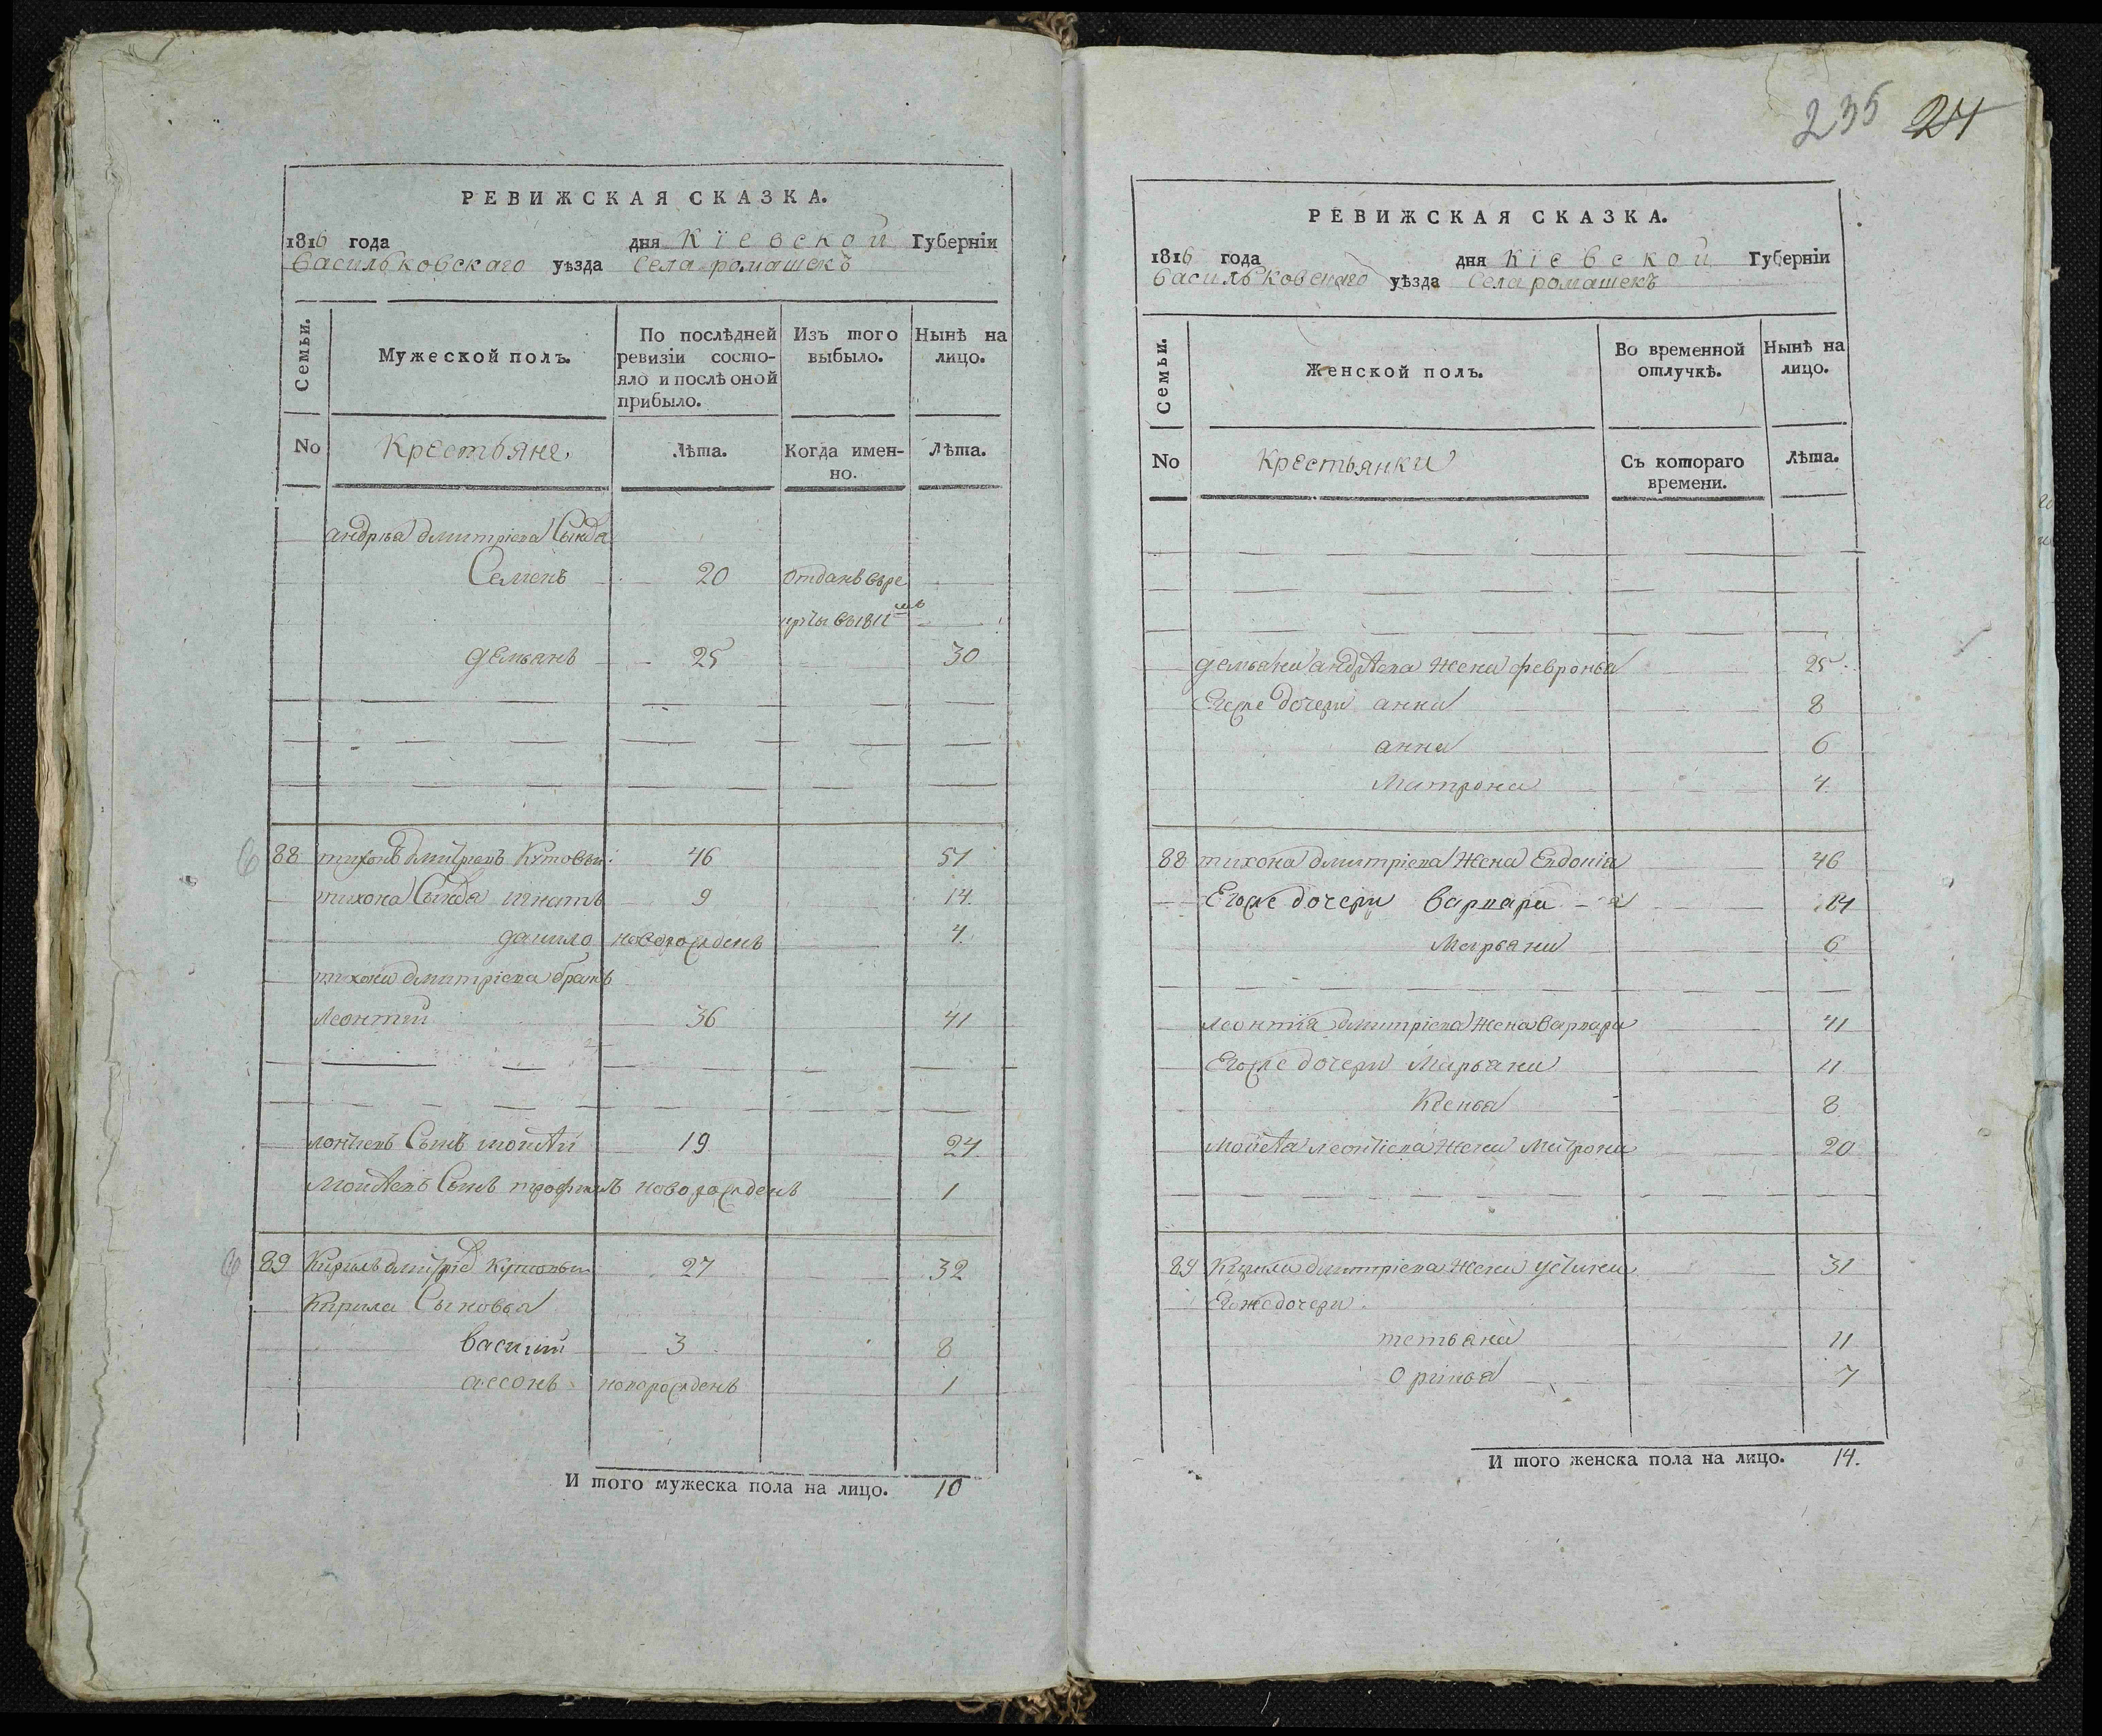 РЕВИЖСКАЯ СКАЗКА.
1816 года дня Кіевской Губерніи
Васильковскаго уѣзда Села ромашекъ
Семьи.
Мужеской полъ.
По послѣдней ревизіи состояло и послѣ оной прибыло.
Изъ того выбыло.
Нынѣ на лицо.
No Крестьяне. Лѣта. Когда именно. Лѣта.
андрѣа дмитріева Сынa
Семенъ 20 отданъ въре
круты въ 1811мъ
демьянъ 25 30
88 тихонъ дмитріевъ Кутовый 46 51
тихона Сынa игнатъ 9 14.
данило новорожденъ 4.
тихона дмитріева братъ
леонтий 36 41
лонтіевъ Сынъ моисѣй 19 24.
моисѣевъ Сынъ трофимъ новорожденъ 1
89 Кирилъ дмитріе Кутовый 27 32
Кирила Сыновьа
василий 3 8
новорожденъ 1
И того мужеска пола на лицо. 10
235 24
РЕВИЖСКАЯ СКАЗКА.
1816 года дня Кіевской Губерніи
Васильковскаго уѣзда Села ромашекъ
Семьи.
Женской полъ.
Во временной отлучкѣ.
Нынѣ на лицо.
No Крестьянки Съ котораго времени. Лѣта.
демьана андрѣева жена февронья 25.
Егоже дочери анна 8
анна 6
Матрона 4.
88 тихона дмитріева жена Евдокіа 46
Егоже дочери варвара 14
Марьана 6
леонтіа дмитріева жена варвара 41
Егоже дочери Марьана 11
Ксеньа 8
моисѣа леонтіева жена Матрона 20
89 Кирила дмитріева жена устина 31
Егоже дочери
тетьана 11
ориньа 7
И того женска пола на лицо. 14.